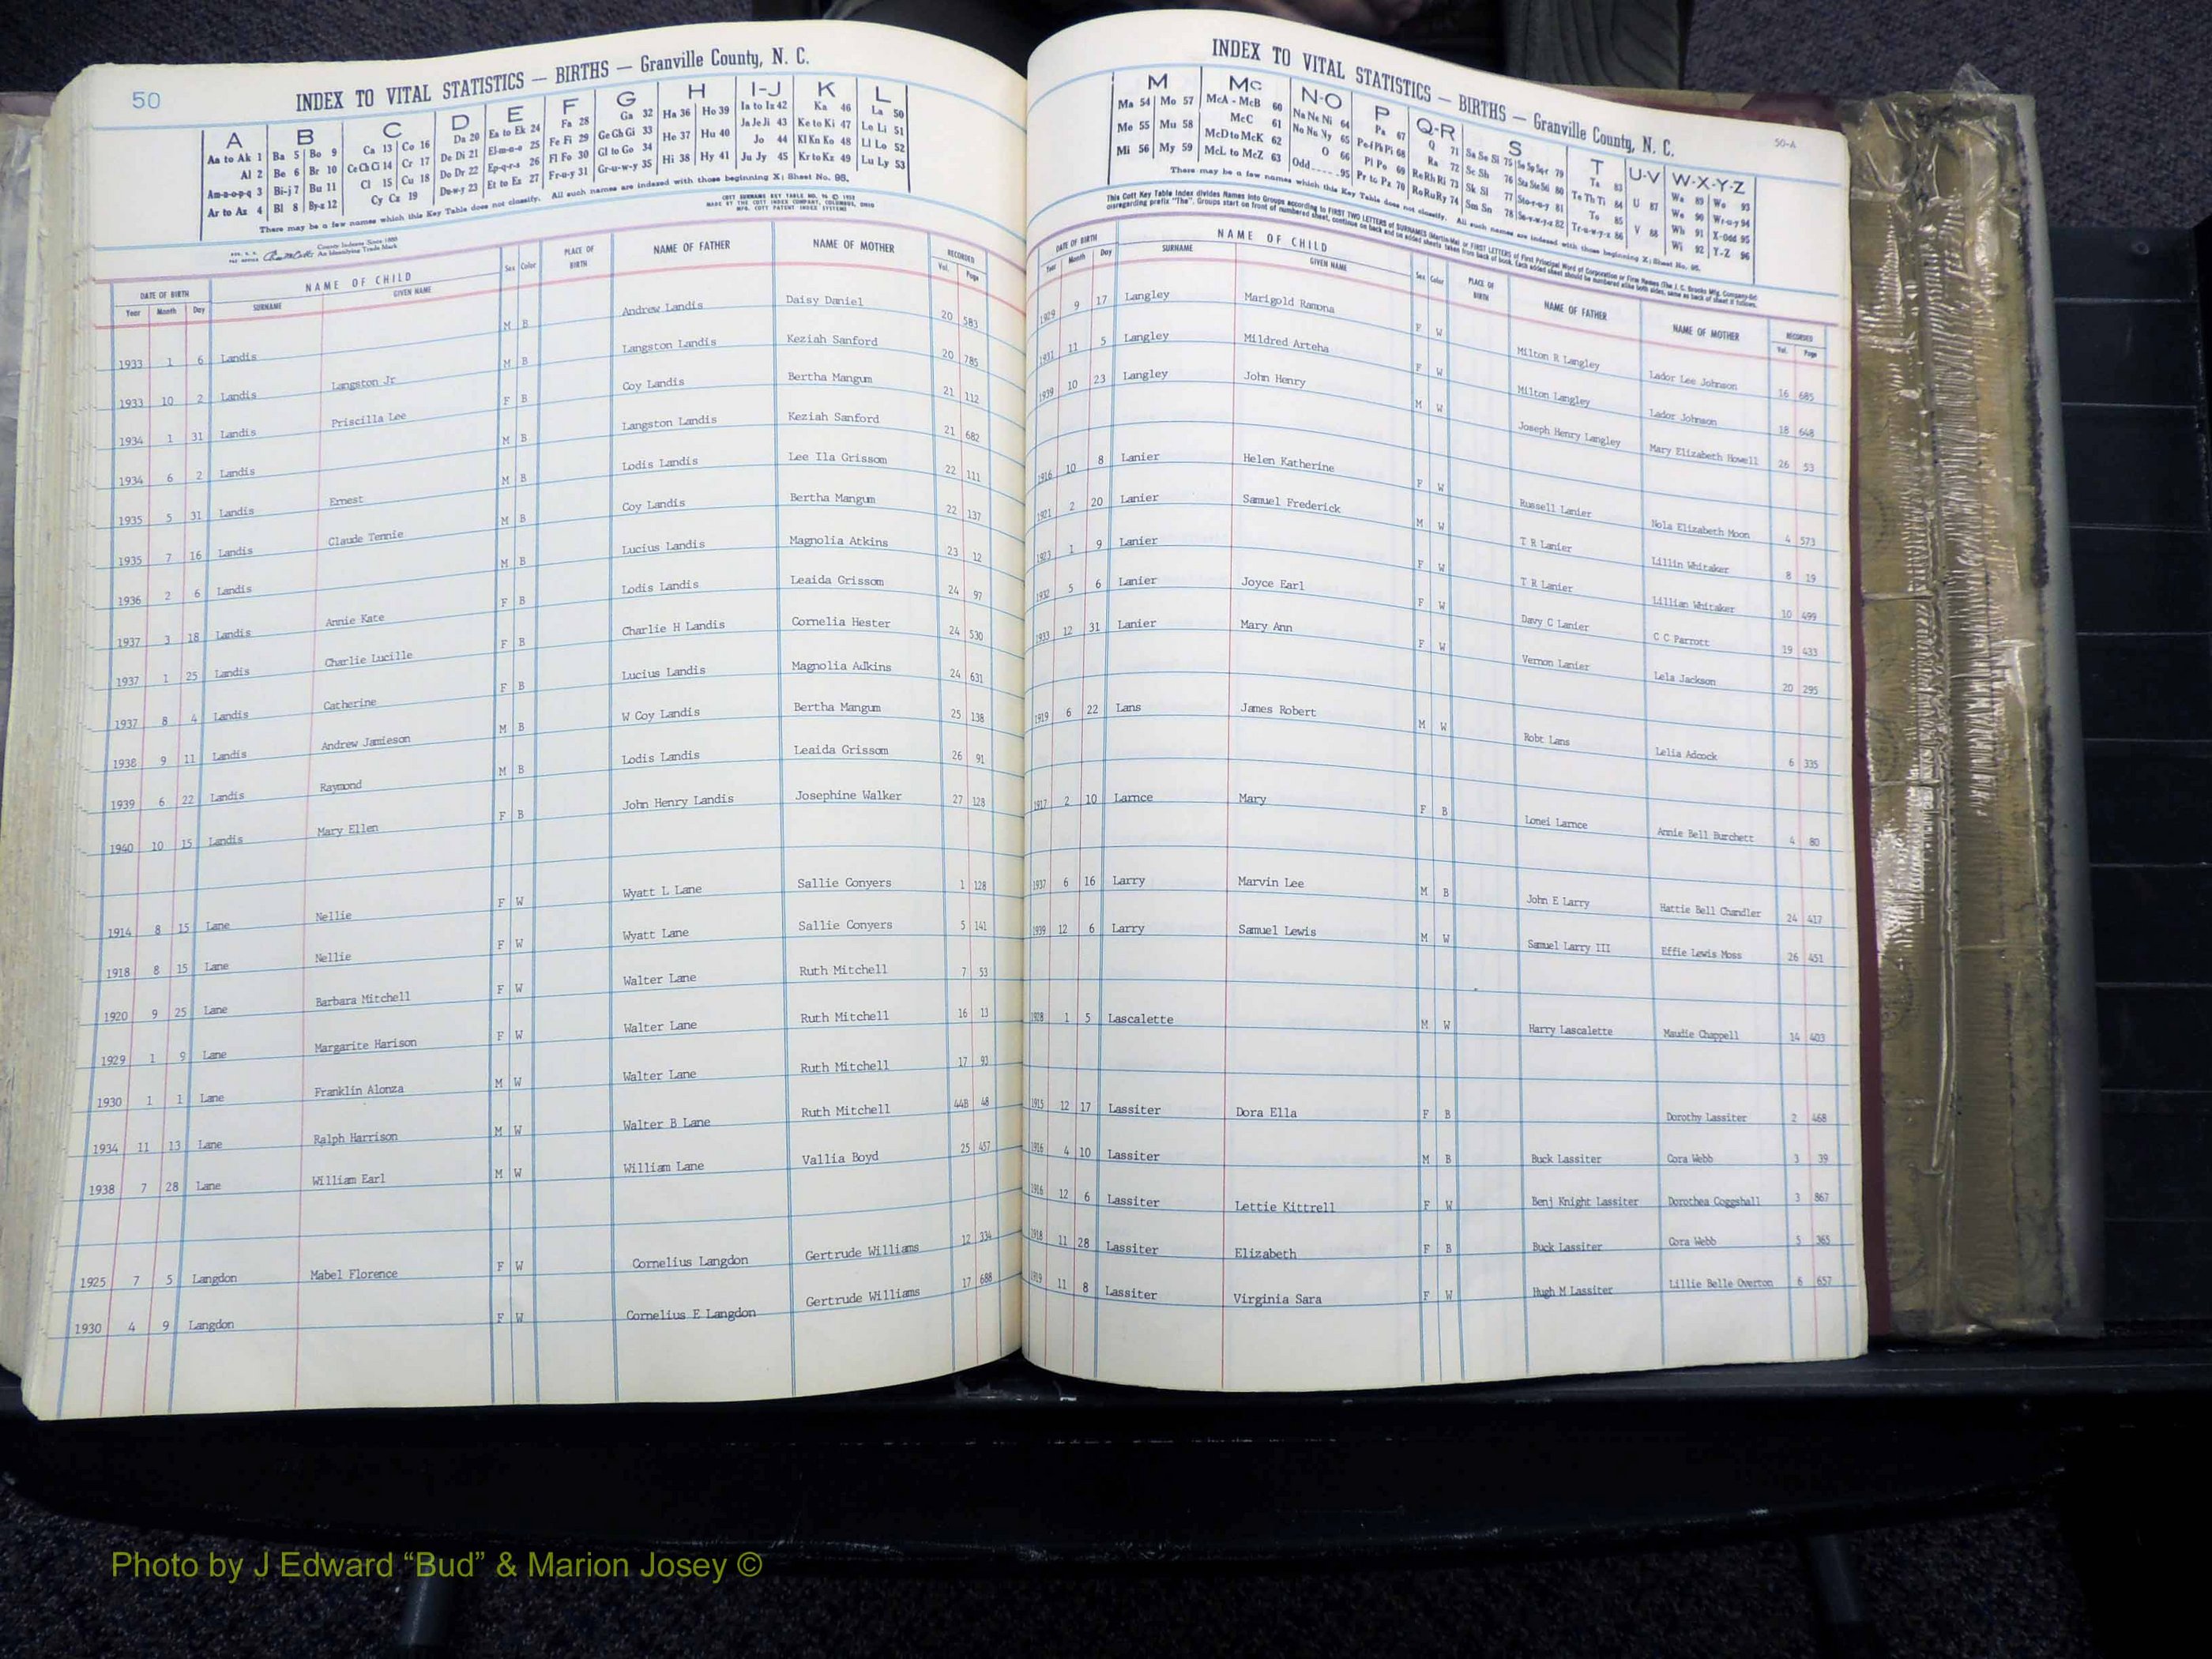 50
INDEX TO VITAL STATISTICS — BIRTHS — Granville County, N. C.
A B C D E F G H I-J K L
Aa to Ak 1 Ba 5 Bo 9 Ca 13 Co 16 Da 20 Ea to Ek 24 Fa 28 Ga 32 Ha 36 Ho 39 Ia to Iz 42 Ka 46 La 50
Al 2 Be 6 Br 10 Ce Ch Ci 14 Cr 17 De Di 21 El-m-n-o 25 Fe Fi 29 Ge Gh Gi 33 He 37 Hu 40 Ja Je Ji 43 Ke to Ki 47 Le Li 51
Am-n-o-p-q 3 Bi-j 7 Bu 11 Cl 15 Cu 18 Do Dr 22 Ep-q-r-s 26 Fl Fo 30 Gl to Go 34 Hi 38 Hy 41 Jo 44 Kl Kn Ko 48 Ll Lo 52
Ar to Az 4 Bl 8 By-z 12 Cy Cz 19 Du-w-y 23 Et to Ez 27 Fr-u-y 31 Gr-u-w-y 35 Ju Jy 45 Kr to Kz 49 Lu Ly 53
There may be a few names which this Key Table does not classify. All such names are indexed with those beginning X; Sheet No. 95.
County Indexes Since 1888
An Identifying Trade Mark
DATE OF BIRTH NAME OF CHILD Sex Color PLACE OF BIRTH NAME OF FATHER NAME OF MOTHER RECORDED
Year Month Day SURNAME GIVEN NAME Vol. Page
1933 1 6 Landis M B Andrew Landis Daisy Daniel 20 583
1933 10 2 Landis Langston Jr M B Langston Landis Keziah Sanford 20 785
1934 1 31 Landis Priscilla Lee F B Coy Landis Bertha Mangum 21 112
1934 6 2 Landis M B Langston Landis Keziah Sanford 21 682
1935 5 31 Landis Ernest M B Lodis Landis Lee Ila Grissom 22 111
1935 7 16 Landis Claude Tennie M B Coy Landis Bertha Mangum 22 137
1936 2 6 Landis M B Lucius Landis Magnolia Atkins 23 12
1937 3 18 Landis Annie Kate F B Lodis Landis Leaida Grissom 24 97
1937 1 25 Landis Charlie Lucille F B Charlie H Landis Cornelia Hester 24 530
1937 8 4 Landis Catherine F B Lucius Landis Magnolia Adkins 24 631
1938 9 11 Landis Andrew Jamieson M B W Coy Landis Bertha Mangum 25 138
1939 6 22 Landis Raymond M B Lodis Landis Leaida Grissom 26 91
1940 10 15 Landis Mary Ellen F B John Henry Landis Josephine Walker 27 128
1914 8 15 Lane Nellie F W Wyatt L Lane Sallie Conyers 1 128
1918 8 15 Lane Nellie F W Wyatt Lane Sallie Conyers 5 141
1920 9 25 Lane Barbara Mitchell F W Walter Lane Ruth Mitchell 7 53
1929 1 9 Lane Margarite Harison F W Walter Lane Ruth Mitchell 16 13
1930 1 1 Lane Franklin Alonza M W Walter Lane Ruth Mitchell 17 93
1934 11 13 Lane Ralph Harrison M W Walter B Lane Ruth Mitchell 44B 48
1938 7 28 Lane William Earl M W William Lane Vallia Boyd 25 457
1925 7 5 Langdon Mabel Florence F W Cornelius Langdon Gertrude Williams 12 334
1930 4 9 Langdon F W Cornelius E Langdon Gertrude Williams 17 688
INDEX TO VITAL STATISTICS — BIRTHS — Granville County, N. C.
50-A
M Mc N-O P Q-R S T U-V W-X-Y-Z
Ma 54 Mo 57 McA - McB 60 Na Ne Ni 64 Pa 67 Q 71 Sa Se Si 75 79 Ta 83 U 87 Wa 89 Wo 93
Me 55 Mu 58 McC 61 No Nu Ny 65 Pe-f Ph Pi 68 Ra 72 Sc Sh 76 80 Te Th Ti 84 V 88 We 90 Wr-u-y 94
Mi 56 My 59 McD to McK 62 O 66 Pl Po 69 Re Rh Ri 73 Sk Sl 77 Sto-r-u-y 81 To 85 Wh 91 X-Odd 95
McL to McZ 63 Odd 95 Pr to Pz 70 Ro Ru Ry 74 Sm Sn 78 Su-v-w-y-z 82 Tr-u-w-y-z 86 Wi 92 Y-Z 96
There may be a few names which this Key Table does not classify. All such names are indexed with those beginning X; Sheet No. 95.
DATE OF BIRTH NAME OF CHILD Sex Color PLACE OF BIRTH NAME OF FATHER NAME OF MOTHER RECORDED
Year Month Day SURNAME GIVEN NAME Vol. Page
1929 9 17 Langley Marigold Ramona F W Milton R Langley Lador Lee Johnson 16 685
1931 11 5 Langley Mildred Arteha F W Milton Langley Lador Johnson 18 648
1939 10 23 Langley John Henry M W Joseph Henry Langley Mary Elizabeth Howell 26 53
1916 10 8 Lanier Helen Katherine F W Russell Lanier Nola Elizabeth Moon 4 573
1921 2 20 Lanier Samuel Frederick M W T R Lanier Lillin Whitaker 8 19
1923 1 9 Lanier F W T R Lanier Lillian Whitaker 10 499
1932 5 6 Lanier Joyce Earl F W Davy C Lanier C C Parrott 19 433
1933 12 31 Lanier Mary Ann F W Vernon Lanier Lela Jackson 20 295
1919 6 22 Lans James Robert M W Robt Lans Lelia Adcock 6 335
1917 2 10 Larnce Mary F B Lonei Larnce Annie Bell Burchett 4 80
1937 6 16 Larry Marvin Lee M B John E Larry Hattie Bell Chandler 24 417
1939 12 6 Larry Samuel Lewis M W Samuel Larry III Effie Lewis Moss 26 451
1928 1 5 Lascalette M W Harry Lascalette Maudie Chappell 14 403
1915 12 17 Lassiter Dora Ella F B Dorothy Lassiter 2 468
1916 4 10 Lassiter M B Buck Lassiter Cora Webb 3 39
1916 12 6 Lassiter Lettie Kittrell F W Benj Knight Lassiter Dorothea Coggshall 3 867
1918 11 28 Lassiter Elizabeth F B Buck Lassiter Cora Webb 5 365
1919 11 8 Lassiter Virginia Sara F W Hugh M Lassiter Lillie Belle Overton 6 657
Photo by J Edward “Bud” & Marion Josey ©